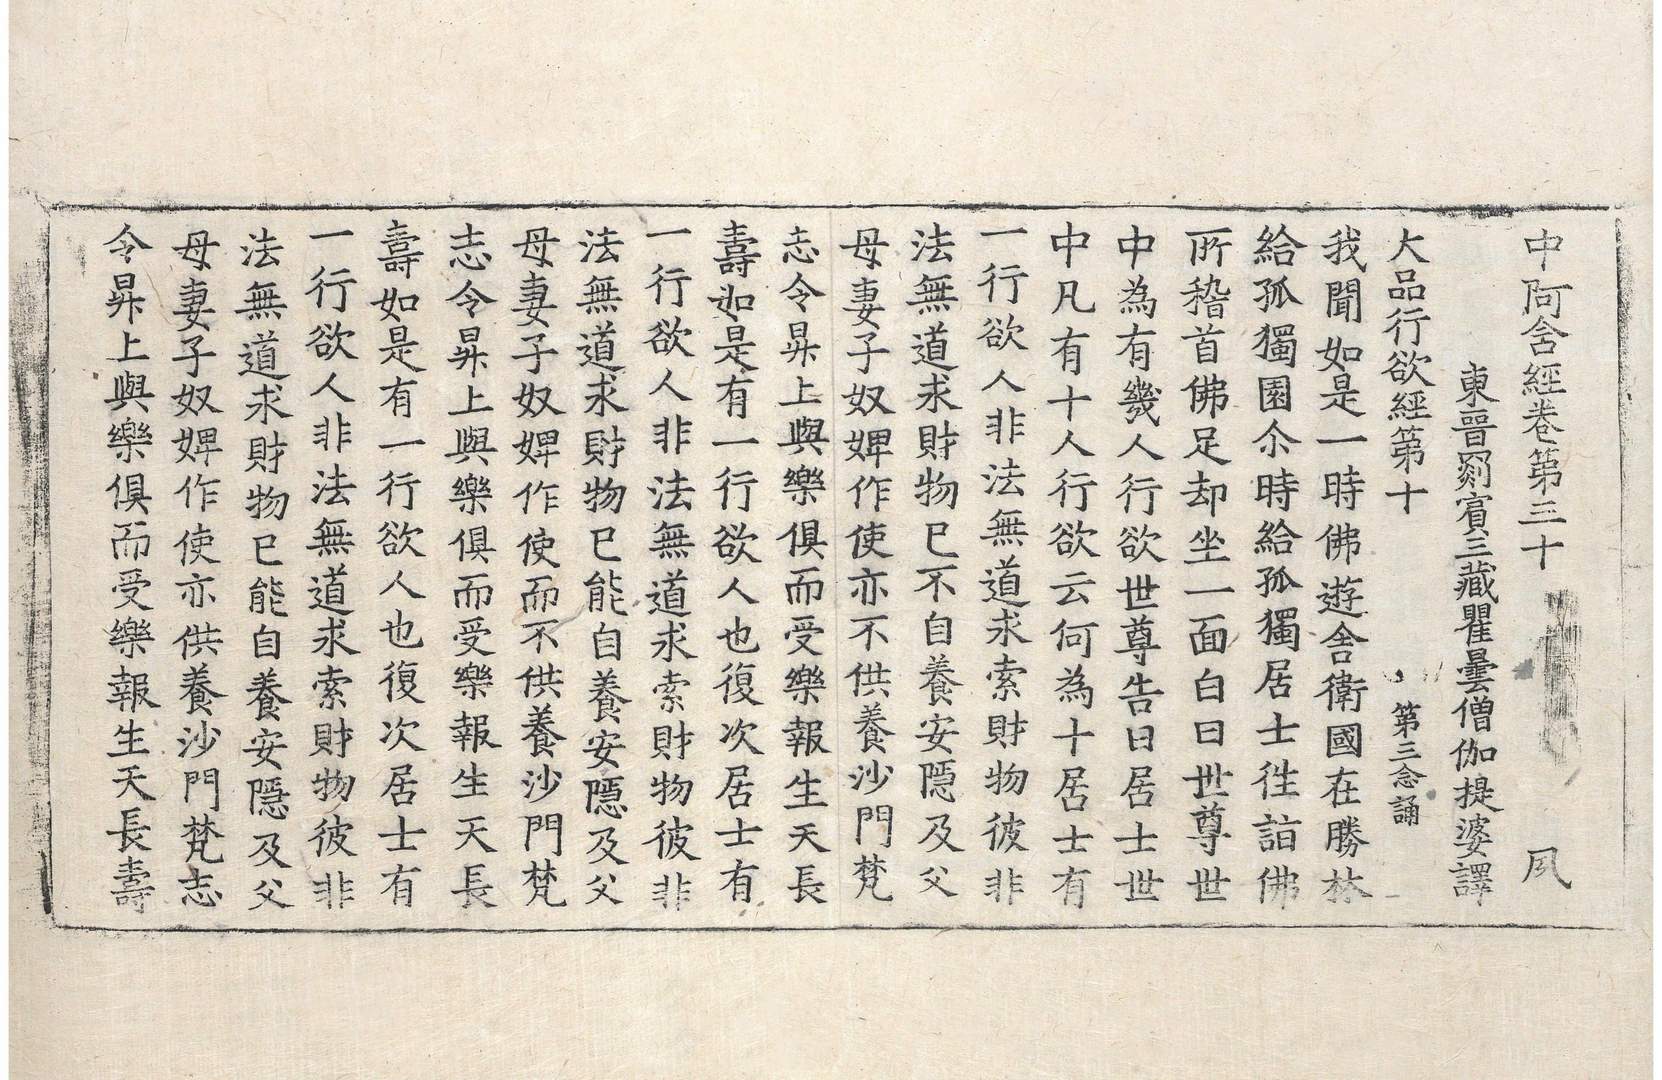 中阿含經卷第三十 夙
東晉罽賓三藏瞿曇僧伽提婆譯
大品行欲經第十 第三念誦
我聞如是一時佛遊舍衛國在勝林
給孤獨園尒時給孤獨居士徃詣佛
所稽首佛足却坐一面白曰世尊世
中為有幾人行欲世尊告曰居士世
中凡有十人行欲云何為十居士有
一行欲人非法無道求索財物彼非
法無道求財物已不自養安隱及父
母妻子奴婢作使亦不供養沙門梵
志令昇上與樂俱而受樂報生天長
壽如是有一行欲人也復次居士有
一行欲人非法無道求索財物彼非
法無道求財物已能自養安隱及父
母妻子奴婢作使而不供養沙門梵
志令昇上與樂俱而受樂報生天長
壽如是有一行欲人也復次居士有
一行欲人非法無道求索財物彼非
法無道求財物已能自養安隱及父
母妻子奴婢作使亦供養沙門梵志
令昇上與樂俱而受樂報生天長壽